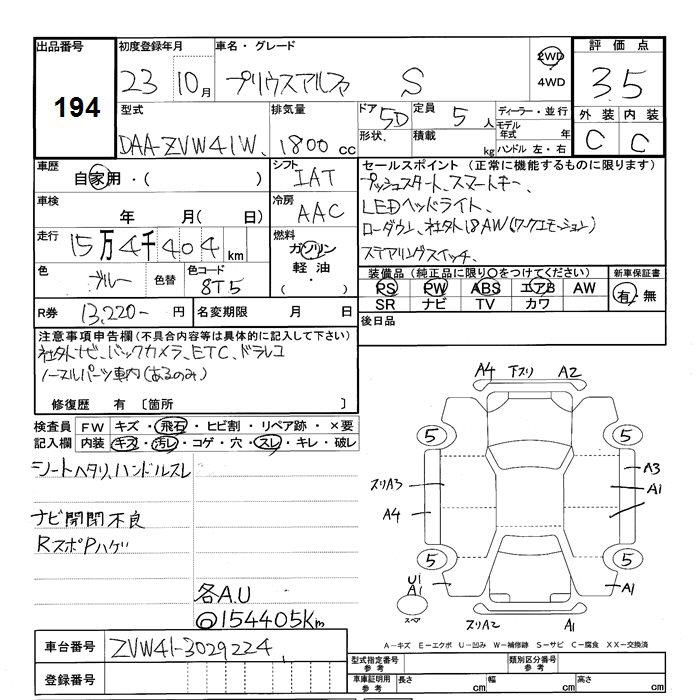 出品番号 初度登録年月 車名・グレード 2WD 評価点
194 23 10月 プリウスアルファ S 4WD 3.5
型式 排気量 ドア 5D 定員 5人 ディーラー・並行 外装 内装
DAA-ZVW41W 1800cc 形状 積載 kg モデル年式 年 C C
ハンドル 左・右
車歴 自家用・( ) シフト IAT セールスポイント(正常に機能するものに限ります)
車検 年 月( 日) 冷房 AAC プッシュスタート、スマートキー、
LEDヘッドライト、
走行 15万4千404km 燃料 ガソリン ローダウン、社外18AW(ワークエモーション)
軽油・( ・ ) ステアリングスイッチ、
色 ブルー 色替 色コード 8T5 装備品(純正品に限り〇をつけてください) 新車保証書
PS PW ABS エアB AW 有・無
R券 13,220-円 名変期限 月 日 SR ナビ TV カワ
注意事項申告欄(不具合内容等は具体的に記入して下さい) 後日品
社外ナビ、バックカメラ、ETC、ドラレコ
ノーマルパーツ車内(あるのみ)
修復歴 有〔箇所 〕
検査員 FW キズ・飛石・ヒビ割・リペア跡・×要
記入欄 内装 キズ・汚レ・コゲ・穴・スレ・キレ・破レ
シートヘタリ、ハンドルスレ
ナビ開閉不良
RスポPハゲ
各A.U
@154405Km
A4 下スリ A2
5 5
スリA3 A3
A4 A1
5 5
U1
A1 A1
スペア スリA2 A1
車台番号 ZVW41-3029224
登録番号
A−キズ E−エクボ U−凹み W−補修跡 S−サビ C−腐食 XX−交換済
型式指定番号 参考 類別区分番号 参考
車庫証明用 参考 長さ cm 幅 cm 高さ cm